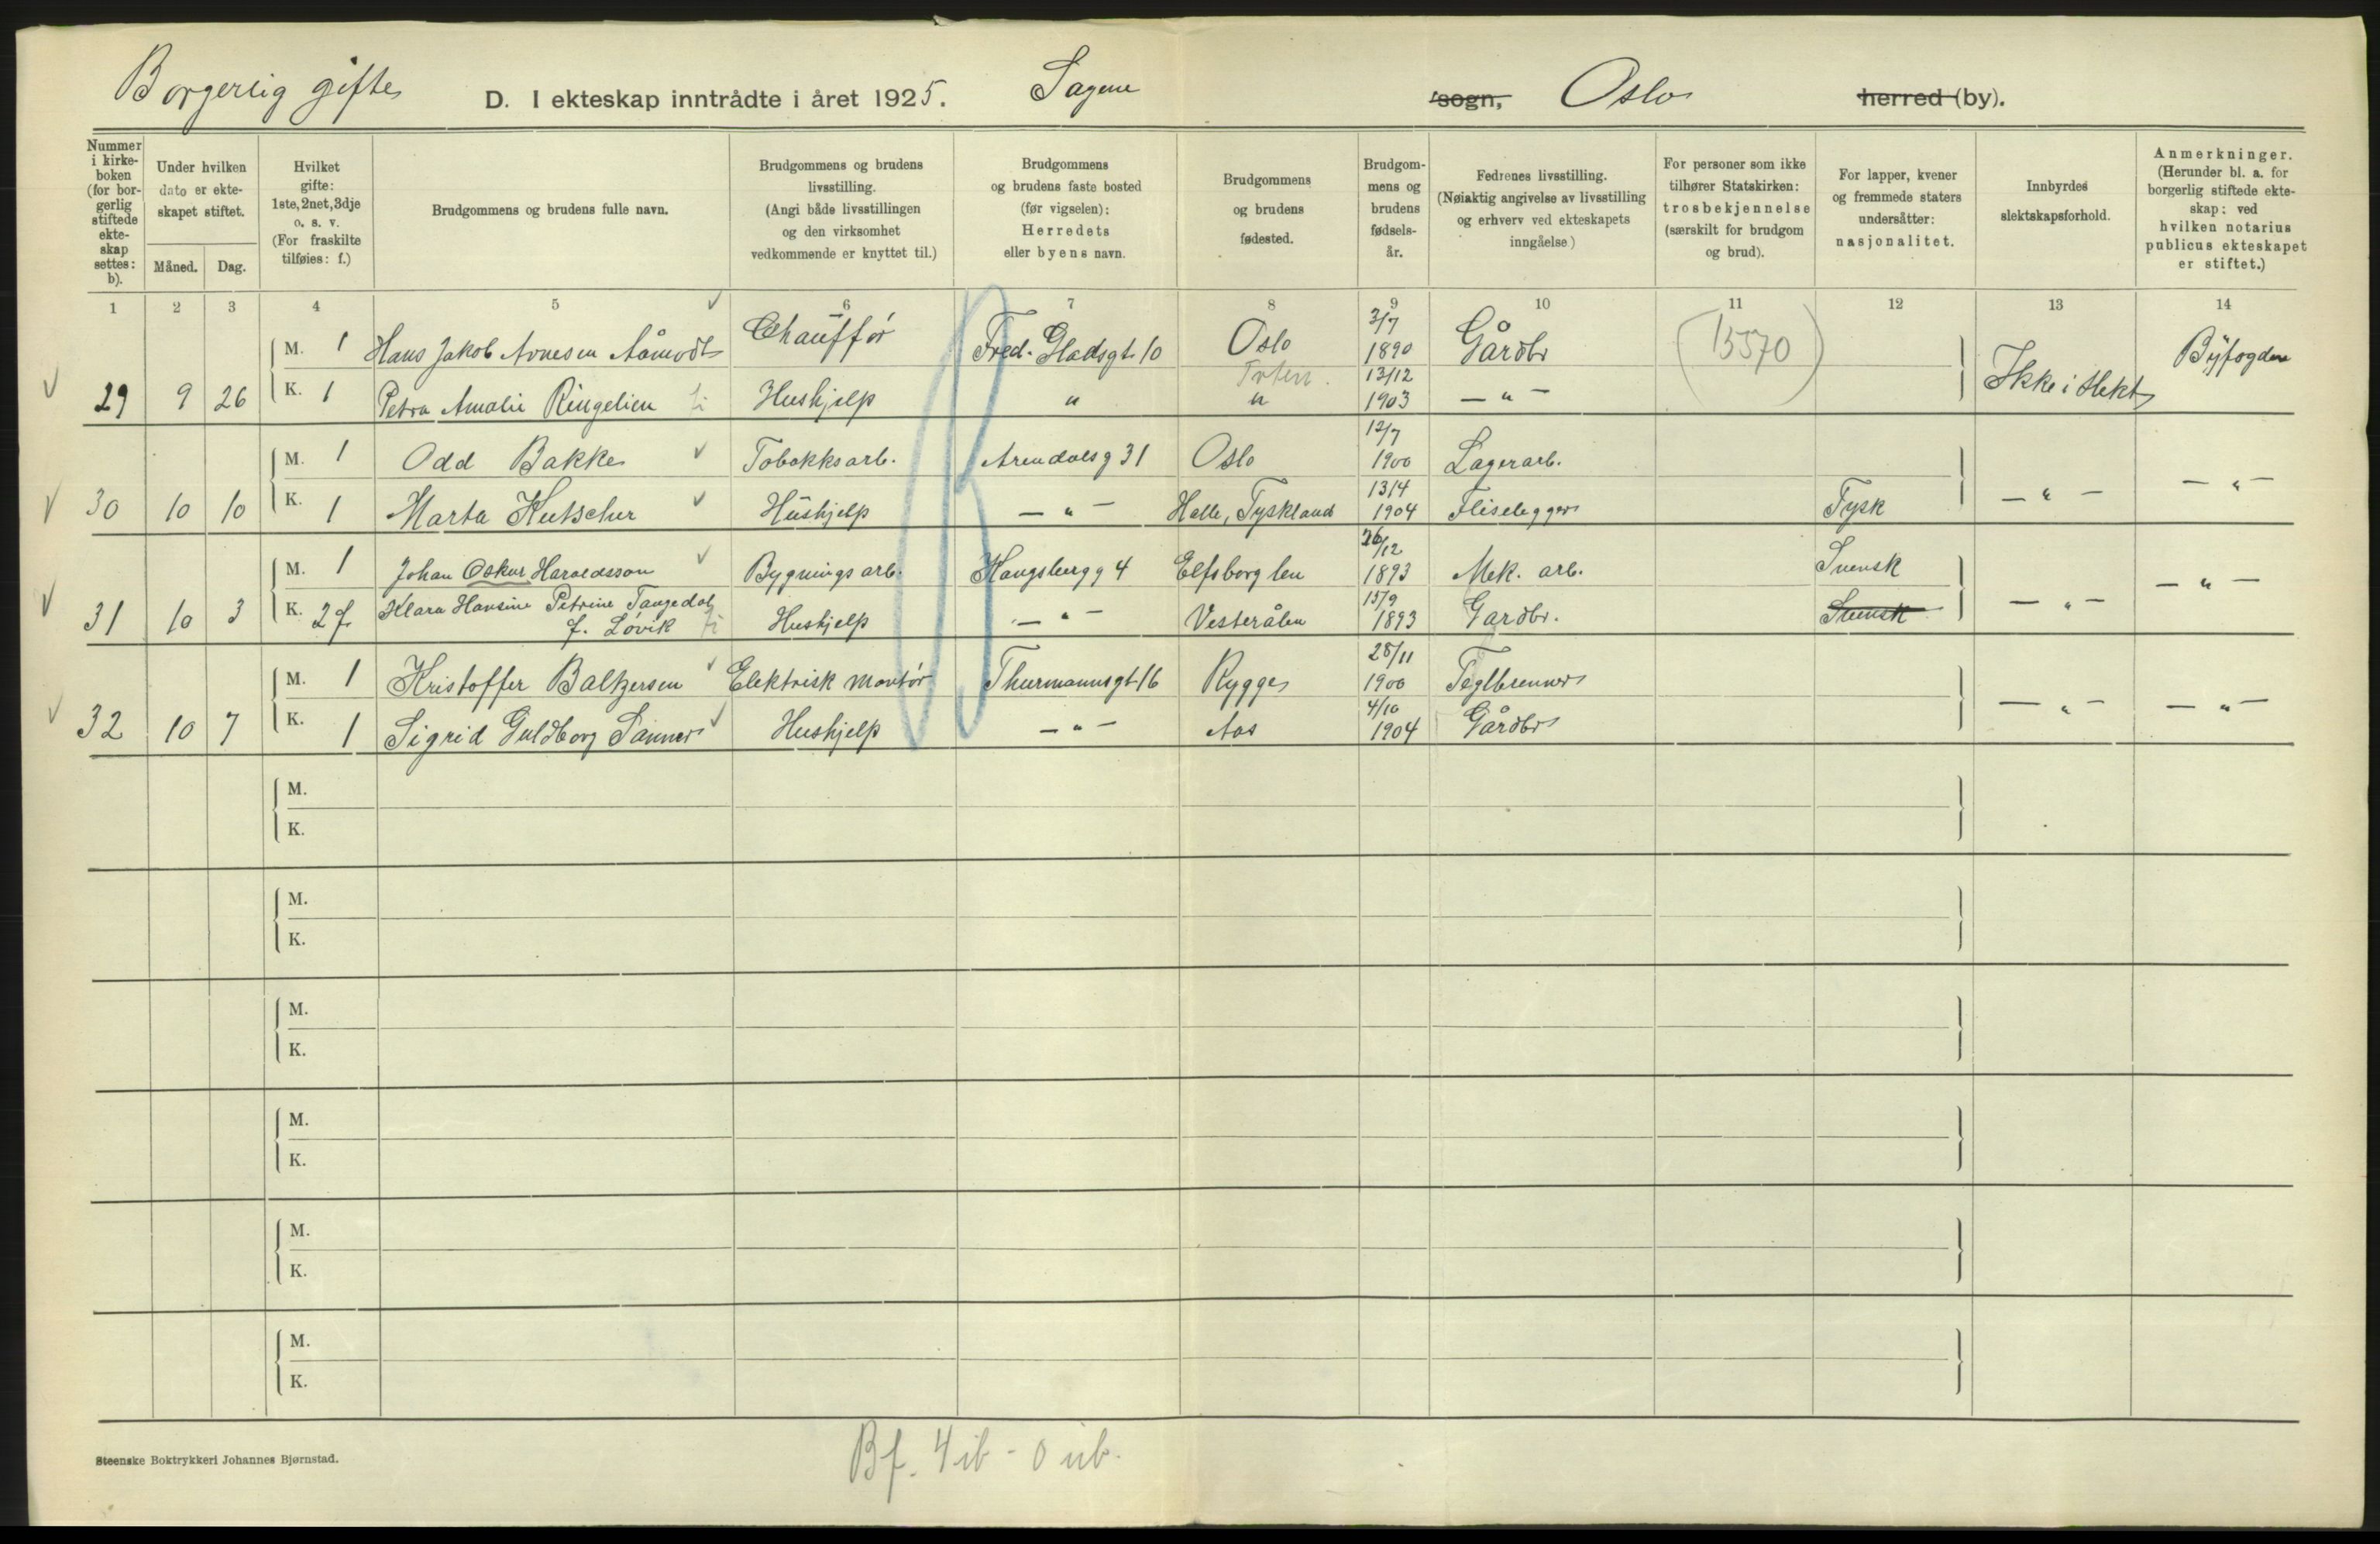 Borgerlig gifte D. I ekteskap inntrådte i året 1925. Sagene sogn, Oslo herred (by).
Nummer i kirke-boken (for bor-gerlig stiftede ekte-skap settes: b).
Under hvilken dato er ekte-skapet stiftet.
Måned. Dag.
Hvilket gifte: 1ste, 2net, 3dje o. s. v. (For fraskilte tilføies: f.)
Brudgommens og brudens fulle navn.
Brudgommens og brudens livsstilling. (Angi både livsstillingen og den virksomhet vedkommende er knyttet til.)
Brudgommens og brudens faste bosted (før vigselen): Herredets eller byens navn.
Brudgommens og brudens fødested.
Brudgom-mens og brudens fødsels-år.
Fedrenes livsstilling. (Nøiaktig angivelse av livsstilling og erhverv ved ekteskapets inngåelse.)
For personer som ikke tilhører Statskirken: trosbekjennelse (særskilt for brudgom og brud).
For lapper, kvener og fremmede staters undersåtter: nasjonalitet.
Innbyrdes slektskapsforhold.
Anmerkninger. (Herunder bl. a. for borgerlig stiftede ekte-skap: ved hvilken notarius publicus ekteskapet er stiftet.)
1 2 3 4 5 6 7 8 9 10 11 12 13 14
M. 1 Hans Jakob Arnesen Åmodt Chauffør Fred. Gladsgt. 10 Oslo 3/7 1890 Gårdbr (15570) Byfogden
29 9 26 K. 1 Petra Amalie Ringelien Hushjelp " Toten " 13/12 1903 — " — Ikke i slekt
M. 1 Odd Bakke Tobakksarb. Arendalsg 31 Oslo 12/7 1900 Lagerarb.
30 10 10 K. 1 Marta Kutscher Hushjelp — " — Halle, Tyskland 13/4 1904 Fliselegger Tysk — " — — " —
M. 1 Johan Oskar Haraldsson Bygningsarb. Kongsbergg 4 Elfsborg len 26/12 1893 Mek. arb. Svensk
31 10 3 K. 2 f. Klara Hansine Petrine Tangedal f. Løvik Hushjelp — " — Vesterålen 15/9 1893 Gardbr. Svensk — " — — " —
M. 1 Kristoffer Baltzersen Elektrisk montør Thurmannsgt. 16 Rygge 28/11 1900 Teglbrenner
32 10 7 K. 1 Sigrid Guldborg Sanner Hushjelp — " — Aas 4/10 1904 Gårdbr — " — — " —
M.
K.
M.
K.
M.
K.
M.
K.
M.
K.
M.
K.
Steenske Boktrykkeri Johannes Bjørnstad.
Bf. 4 ib - 0 ub.